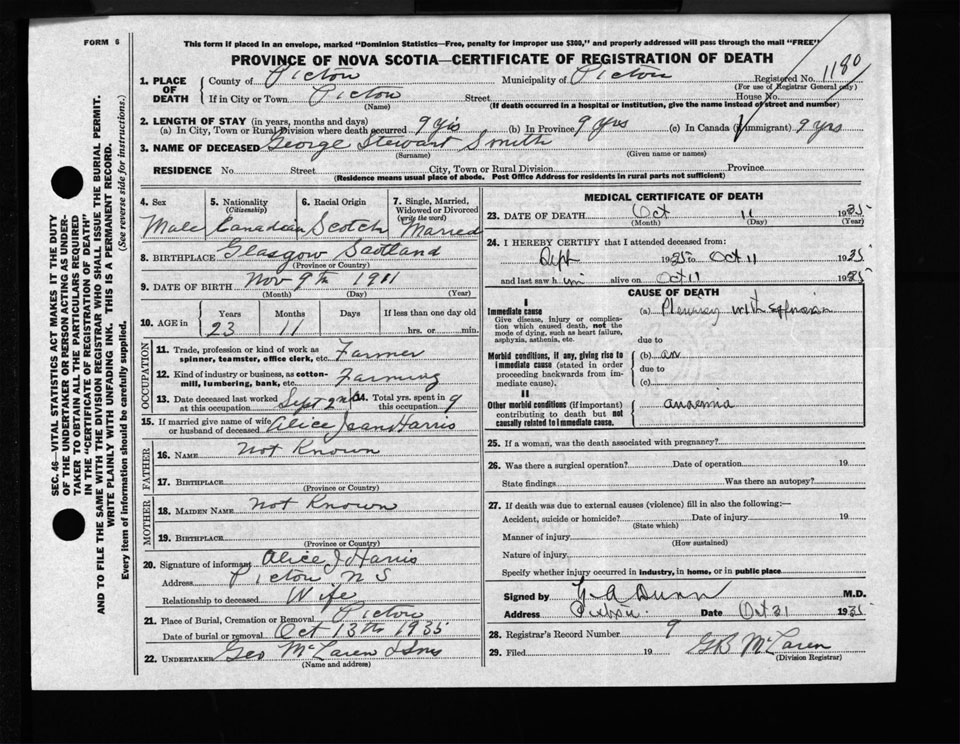 FORM 6
This form if placed in an envelope, marked "Dominion Statistics—Free, penalty for improper use $300," and properly addressed will pass through the mail "FREE"
PROVINCE OF NOVA SCOTIA—CERTIFICATE OF REGISTRATION OF DEATH
1. PLACE OF DEATH
County of Pictou Municipality of Pictou Registered No. 1180
(For use of Registrar General only)
If in City or Town Pictou Street House No.
(Name) (If death occurred in a hospital or institution, give the name instead of street and number)
2. LENGTH OF STAY (in years, months and days)
(a) In City, Town or Rural Division where death occurred 9 yrs (b) In Province 9 yrs (c) In Canada (if immigrant) 9 yrs
3. NAME OF DECEASED George Stewart Smith
(Surname) (Given name or names)
RESIDENCE No. Street City, Town or Rural Division Province
(Residence means usual place of abode. Post Office Address for residents in rural parts not sufficient)
4. Sex 5. Nationality (Citizenship) 6. Racial Origin 7. Single, Married, Widowed or Divorced (write the word)
Male Canadian Scotch Married
8. BIRTHPLACE Glasgow Scotland
(Province or Country)
9. DATE OF BIRTH Nov 9th 1911
(Month) (Day) (Year)
10. AGE in Years Months Days If less than one day old
23 11 hrs. or min.
OCCUPATION
11. Trade, profession or kind of work as spinner, teamster, office clerk, etc. Farmer
12. Kind of industry or business, as cotton-mill, lumbering, bank, etc. Farming
13. Date deceased last worked at this occupation Sept 2nd 14. Total yrs. spent in this occupation 9
15. If married give name of wife or husband of deceased Alice Jean Harris
FATHER
16. NAME Not Known
17. BIRTHPLACE
(Province or Country)
MOTHER
18. MAIDEN NAME Not Known
19. BIRTHPLACE
(Province or Country)
20. Signature of informant Alice J Harris
Address Pictou N S
Relationship to deceased Wife
21. Place of Burial, Cremation or Removal Pictou
Date of burial or removal Oct 13th 1935
22. UNDERTAKER Geo McLaren & Sons
(Name and address)
MEDICAL CERTIFICATE OF DEATH
23. DATE OF DEATH Oct 11 1935
(Month) (Day) (Year)
24. I HEREBY CERTIFY that I attended deceased from:
Sept 1935 to Oct 11 1935
and last saw him alive on Oct 11 1935
CAUSE OF DEATH
I
Immediate cause (a) Pleurisy with Effusion
Give disease, injury or complication which caused death, not the mode of dying, such as heart failure, asphyxia, asthenia, etc.
due to
Morbid conditions, if any, giving rise to immediate cause (stated in order proceeding backwards from immediate cause). (b) an
due to
(c)
II
Other morbid conditions (if important) contributing to death but not causally related to immediate cause. anaemia
25. If a woman, was the death associated with pregnancy?
26. Was there a surgical operation? Date of operation 19
State findings Was there an autopsy?
27. If death was due to external causes (violence) fill in also the following:—
Accident, suicide or homicide? Date of injury 19
(State which)
Manner of injury
(How sustained)
Nature of injury
Specify whether injury occurred in industry, in home, or in public place
Signed by G A Dunn M.D.
Address Pictou Date Oct 31 1935
28. Registrar's Record Number 9
29. Filed 19 GB McLaren
(Division Registrar)
SEC. 46—VITAL STATISTICS ACT MAKES IT THE DUTY
OF THE UNDERTAKER OR PERSON ACTING AS UNDER-
TAKER TO OBTAIN ALL THE PARTICULARS REQUIRED
IN THE "CERTIFICATE OF REGISTRATION OF DEATH"
AND TO FILE THE SAME WITH THE DIVISION REGISTRAR WHO SHALL ISSUE THE BURIAL PERMIT.
WRITE PLAINLY WITH UNFADING INK. THIS IS A PERMANENT RECORD.
Every item of information should be carefully supplied. (See reverse side for instructions.)